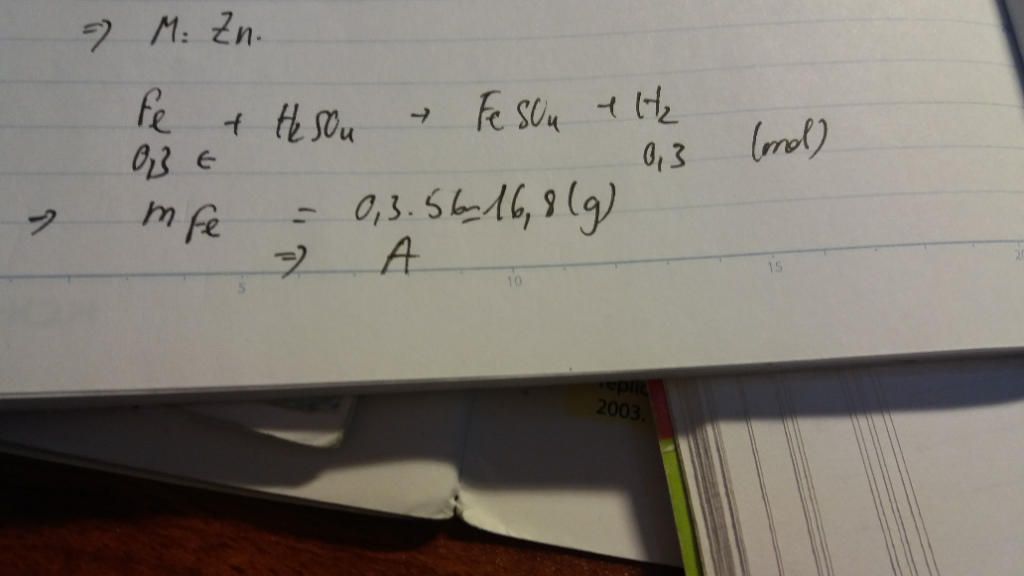 ⇒ M: Zn.
Fe + H2SO4 → FeSO4 + H2
0,3 ← 0,3 (mol)
⇒ mFe = 0,3.56=16,8(g)
⇒ A
5 10 15 20
2003.